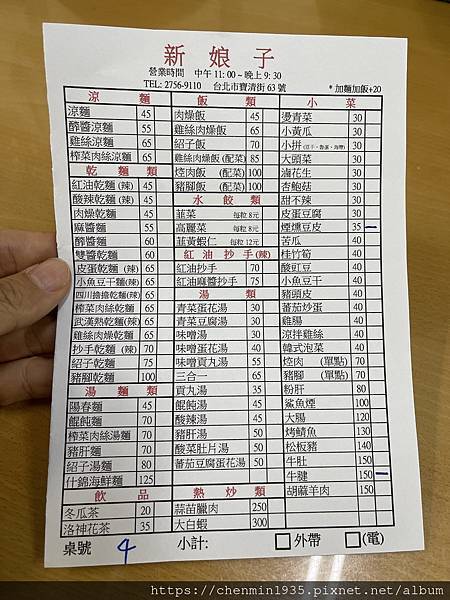 新娘子
營業時間 中午11:00~晚上9:30
TEL: 2756-9110 台北市寶清街63號 *加麵加飯+20
涼麵
涼麵 45
醡醬涼麵 55
雞絲涼麵 65
榨菜肉絲涼麵 65
乾麵類
紅油乾麵(辣) 45
酸辣乾麵(辣) 45
肉燥乾麵 45
麻醬麵 55
醡醬麵 60
雙醬乾麵 60
皮蛋乾麵(辣) 65
小魚豆干麵(辣) 65
四川擔擔乾麵(辣) 65
榨菜肉絲乾麵 65
武漢熱乾麵(辣) 65
雞絲燥乾麵 65
抄手乾麵(辣) 70
紹子乾麵 75
豬腳乾麵 100
湯麵類
陽春麵 45
餛飩麵 70
榨菜肉絲湯麵 70
豬肝麵 70
紹子湯麵 80
什錦海鮮麵 125
飲品
冬瓜茶 20
洛神花茶 35
飯類
肉燥飯 45
雞絲肉燥飯 65
紹子飯 70
雞絲肉燥飯(配菜) 85
焢肉飯 (配菜) 100
豬腳飯 (配菜) 100
水餃類
韮菜 每粒8元
高麗菜 每粒8元
韮黃蝦仁 每粒12元
紅油抄手(辣)
紅油抄手 70
紅油麻醬抄手 75
湯類
青菜蛋花湯 30
青菜豆腐湯 30
味噌湯 30
味噌蛋花湯 40
味噌貢丸湯 55
三合一 65
貢丸湯 35
餛飩湯 45
酸辣湯 45
豬肝湯 50
酸菜肚片湯 50
蕃茄豆腐蛋花湯 50
熱炒類
蒜苗臘肉 250
大白蝦 300
小菜
燙青菜 30
小黃瓜 30
小拼 30
大頭菜 30
滷花生 30
杏鮑菇 30
甜不辣 30
皮蛋豆腐 30
煙燻豆皮 35
苦瓜 40
桂竹筍 40
酸豇豆 40
小魚豆干 40
豬頭皮 40
蕃茄炒蛋 40
雞腸 40
涼拌雞絲 40
韓式泡菜 40
焢肉 (單點) 70
豬腳 (單點) 70
粉肝 80
鯊魚煙 100
大腸 120
烤鯖魚 130
松板豬 140
牛肚 150
牛腱 150
胡蔴羊肉 150
桌號 4 小計: 外帶 (電)
https://chenmin1935.pixnet.net/album